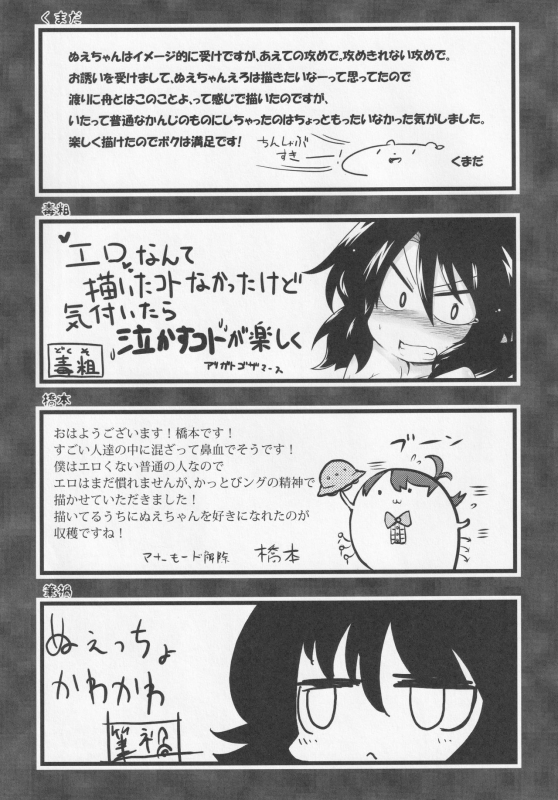 くまだ
ぬえちゃんはイメージ的に受けですが、あえての攻めで。攻めきれない攻めで。
お誘いを受けまして、ぬえちゃんえろは描きたいなーって思ってたので
渡りに舟とはこのことよ、って感じで描いたのですが、
いたって普通なかんじのものにしちゃったのはちょっともったいなかった気がしました。
楽しく描けたのでボクは満足です!
ちんしゃぶ
すき
くまだ
毒粗
エロなんて
描いたコトなかったけど
気付いたら
泣かすコトが楽しく
どくそ
毒粗
アリガトゴザマース
橋本
おはようございます!橋本です!
すごい人達の中に混ざって鼻血でそうです!
僕はエロくない普通の人なので
エロはまだ慣れませんが、かっとびングの精神で
描かせていただきました!
描いてるうちにぬえちゃんを好きになれたのが
収穫ですね!
ブーン
マナーモード解除
橋本
筆禍
ぬえっちょ
かわかわ
筆禍